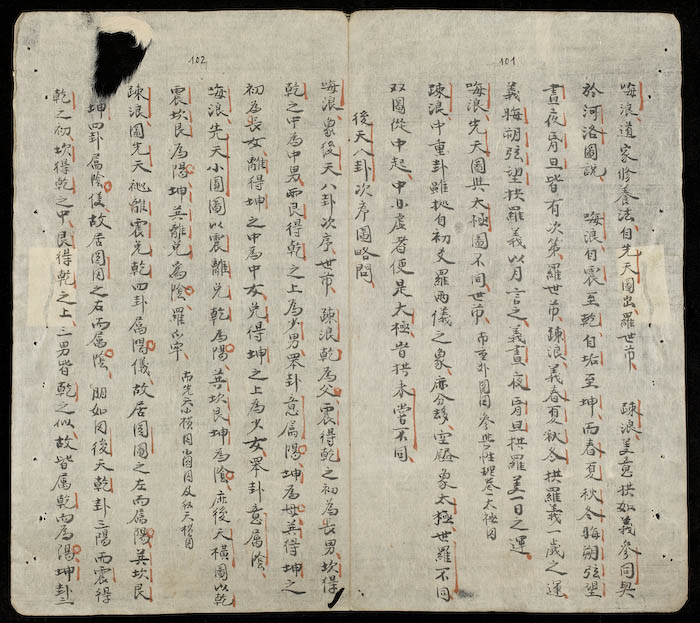 101
㗂浪道家修養法自先天圖出羅世市 疎浪美意拱如義參同契
於河洛圖説 㗂浪自震至乾自垢至坤而春夏秋冬晦朔弦望
晝夜昏旦皆有次第羅世市疎浪義春夏秋冬拱羅義一歲之運
義晦朔弦望拱羅義以月言之義晝夜昏旦拱羅美一日之運
㗂浪先天圖與太極圖不同世市 
疎浪中重卦雖 自初爻羅兩儀之象亦分 空 象太極世羅不同
双圖從中起中虛者便是太極皆拱未嘗不同
後天八卦次序圖略問
102
㗂浪象後天八卦次序世市 疎浪乾為父震得乾之初為長男坎得
乾之中為中男而艮得乾之上為少男畧卦意属陽坤為母巽得坤之
初為長女離得坤之中為中女兌得坤之上為少女畧卦意属陰
㗂浪先天小圓圖以震離兌乾為陽巽坎艮坤為陰亦後天橫圖以乾
震坎艮為陽坤巽離兌為陰羅 牢
疎浪圖先天 離震兌乾四卦属陽儀故居圓圖之左而属陽巽坎艮
坤四卦属陰儀故居圓圖之右而属陰 如圖後天乾卦三陽而震得
乾之初坎得乾之中艮得乾之上三男皆乾之似故皆属乾而為陽坤卦三